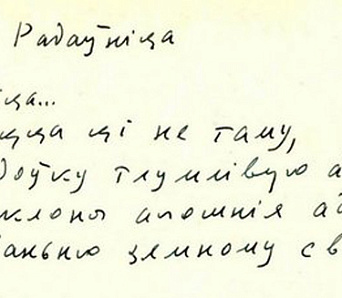 Радаўніца
ца...
ци ці не таму,
доўку тлумлівую а
клоны апошнія ад
ванню земному св